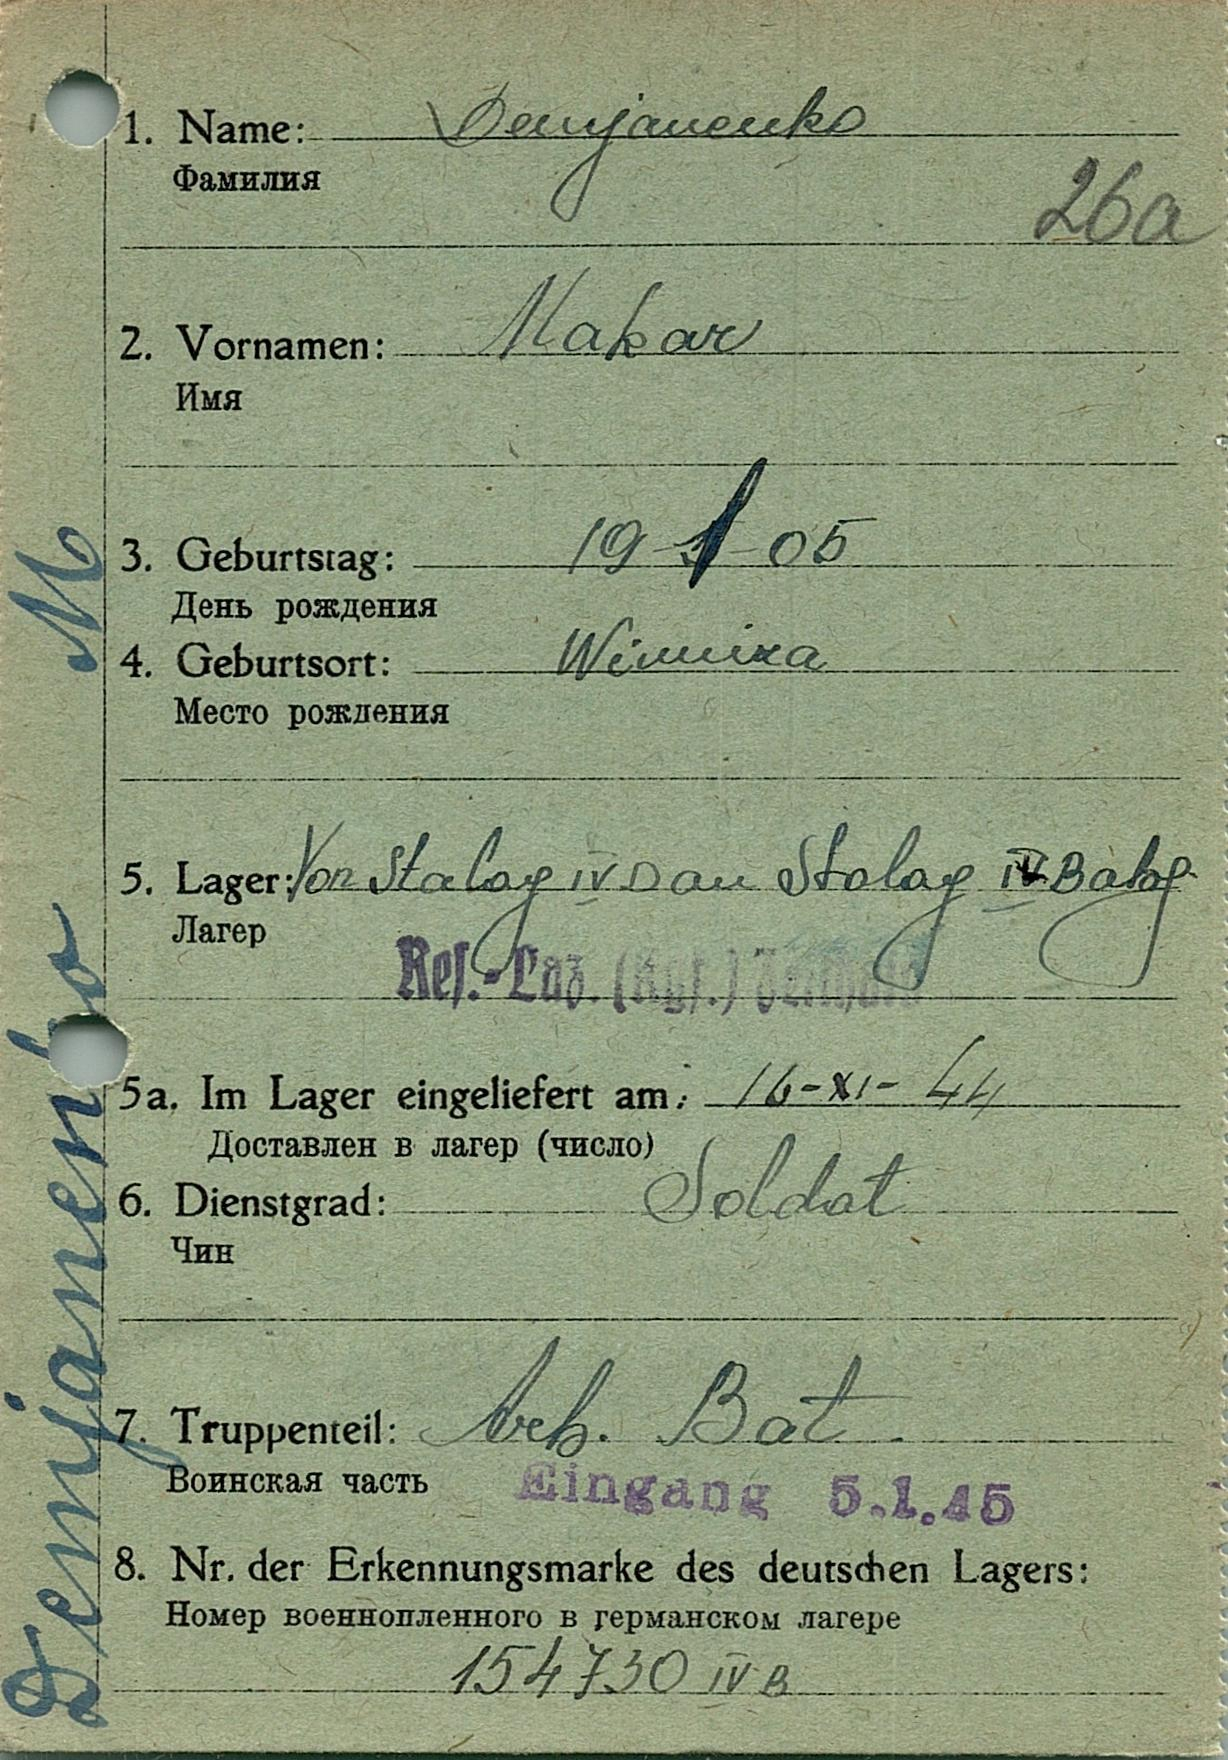 1. Name: Demjanenko
Фамилия
26a
2. Vornamen: Makar
Имя
3. Geburtstag: 19-1-05
День рождения
4. Geburtsort: Winniza
Место рождения
5. Lager: Von Stalag IV D an Stalag IV B abg.
Лагер
Res.-Laz. (Kgf.) Zeithain
5a. Im Lager eingeliefert am: 16-XI-44
Доставлен в лагер (число)
6. Dienstgrad: Soldat
Чин
7. Truppenteil: Arb. Bat.
Воинская часть
Eingang 5.1.45
8. Nr. der Erkennungsmarke des deutschen Lagers:
Номер военнопленного в германском лагере
154730 IV B
Demjanenko M